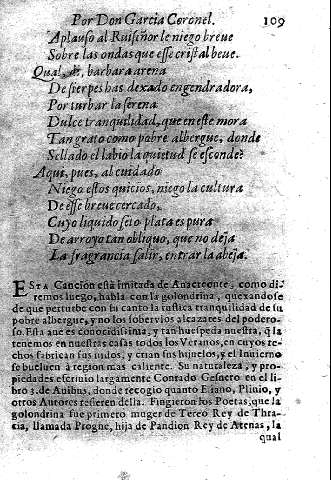 Por Don Garcia Coronel. 109
Aplauso al Ruiseñor le niego breue
Sobre las ondas que esse cristal beue.
Qual, di, barbara arena
De sierpes has dexado engendradora,
Por turbar la serena
Dulce tranquilidad, que en este mora
Tan grato como pobre albergue, donde
Sellado el labio la quietud se esconde?
Aqui, pues, al cuidado
Niego estos quicios, niego la cultura
De esse breue cercado,
Cuyo liquido seto plata es pura
De arroyo tan obliquo, que no deja
La fragrancia salir, entrar la abeja.
ESTA Cancion está imitada de Anacreonte, como di-
remos luego, habla con la golondrina, quexandose
de que perturbe con su canto la rustica tranquilidad de su
pobre albergue, y no los sobervios alcazares del podero-
so. Esta aue es conocidissima, y tan huespeda nuestra, q̃ la
tenemos en nuestras casas todos los Veranos, en cuyos te-
chos fabrican sus nidos, y crian sus hijuelos, y el Inuierno
se bueluen à region mas caliente. Su naturaleza, y pro-
piedades escriuio largamente Conrado Gesnero en el li-
bro 3. de Auibus, donde recogio quanto Eliano, Plinio, y
otros Autores refieren della. Fingieron los Poetas, que la
golondrina fue primero muger de Tereo Rey de Thra-
cia, llamada Progne, hija de Pandion Rey de Atenas, la
qual